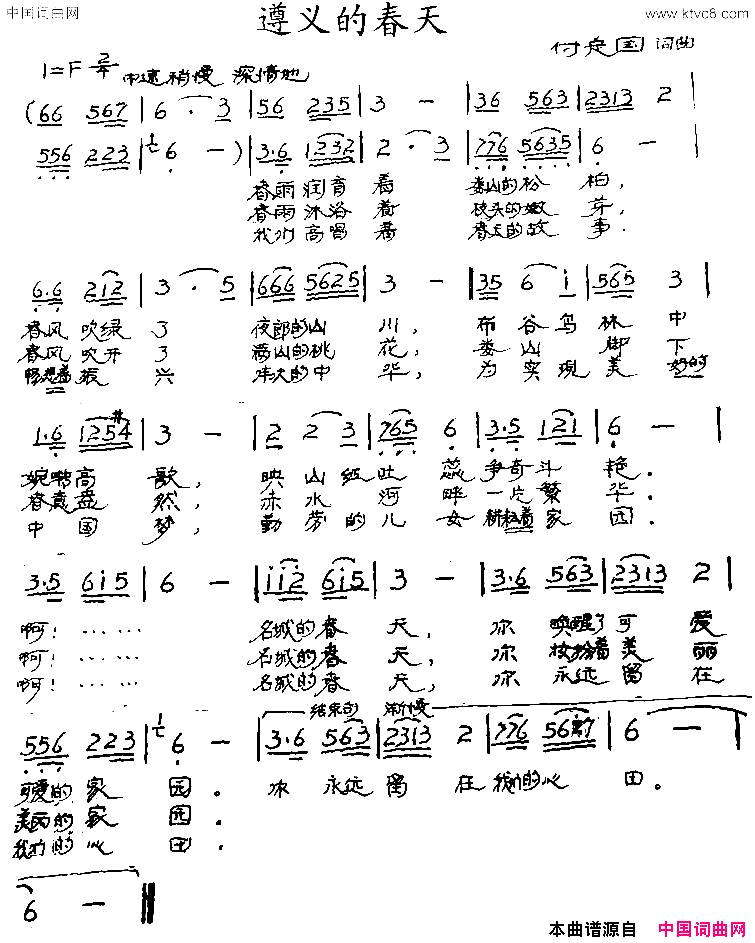 中国词曲网
www.ktvc6.com
遵义的春天
付定国 词曲
1=F 2/4 中速稍慢 深情地
(66 567 | 6 · 3 | 56 235 | 3 — | 36 563 | 2313 2 |
556 223 | 6 — ) | 3·6 1232 | 2 · 3 | 776 5635 | 6 — |
春雨润育着 娄山的松柏,
春雨沐浴着 枝头的嫩芽,
我们高唱着 春天的故事,
6·6 212 | 3 · 5 | 666 5625 | 3 — | 35 6 i | 565 3 |
春风吹绿了 夜郎的山川, 布谷鸟林中
春风吹开了 满山的桃花, 娄山脚下
畅想着振兴 伟大的中华, 为实现美好的
1·6 125#4 | 3 — | 2 2 3 | 765 6 | 3·5 121 | 6 — |
婉啭高歌, 映山红吐蕊争奇斗艳.
春意盎然, 赤水河畔一片繁华.
中国梦, 勤劳的儿女耕耘着家园.
3·5 6i5 | 6 — | ii2 6i5 | 3 — | 3·6 563 | 2313 2 |
啊! …… …… 名城的春天, 你唤醒了可爱
啊! …… …… 名城的春天, 你妆扮着美丽
啊! …… …… 名城的春天, 你永远留在
结束句 渐慢
556 223 | 6 — | 3·6 563 | 2313 2 | 776 567 | 6 — |
可爱的家园. 你永远留在我们的心田.
美丽的家园.
我们的心田.
6 — ‖
本曲谱源自 中国词曲网